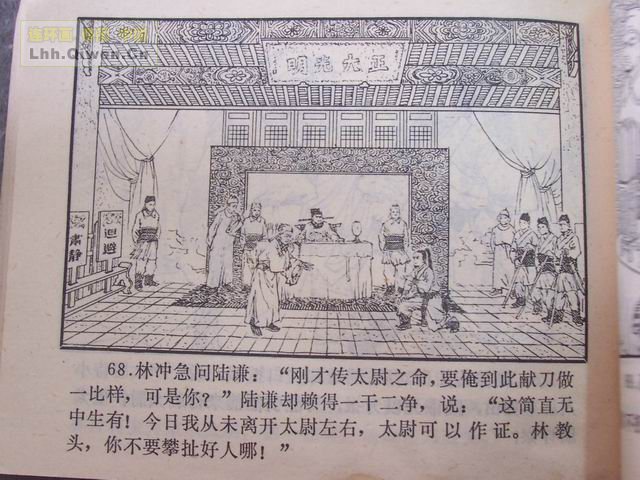 连环画
Lhh.Qiwen.Cn
明光大正
肃静
迴避
68.林冲急问陆谦：“刚才传太尉之命，要俺到此献刀做
一比样，可是你？”陆谦却赖得一干二净，说：“这简直无
中生有！今日我从未离开太尉左右，太尉可以作证。林教
头，你不要攀扯好人哪！”